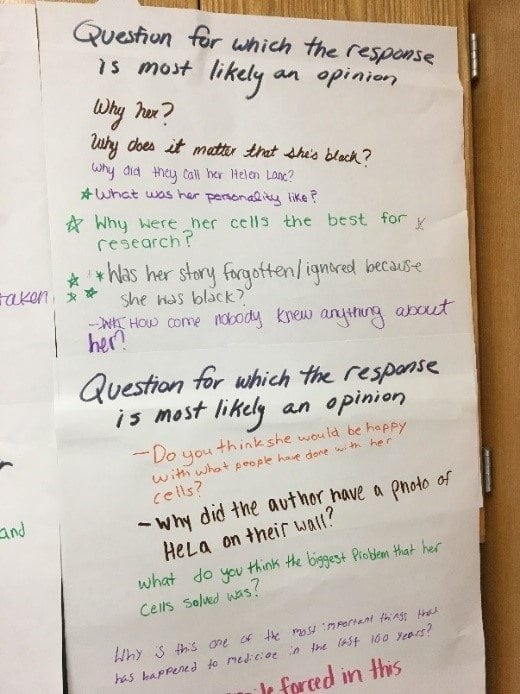 Question for which the response
is most likely an opinion
Why her?
Why does it matter that she's black?
Why did they call her Helen Lane?
What was her personality like?
Why were her cells the best for
research?
Was her story forgotten/ignored because
she was black?
- How come nobody knew anything about
her?
taken
Question for which the response
is most likely an opinion
- Do you think she would be happy
with what people have done with her
cells?
- Why did the author have a photo of
HeLa on their wall?
and
What do you think the biggest problem that her
cells solved was?
Why is this one of the most important things that
has happened to medicine in the last 100 years?
forced in this